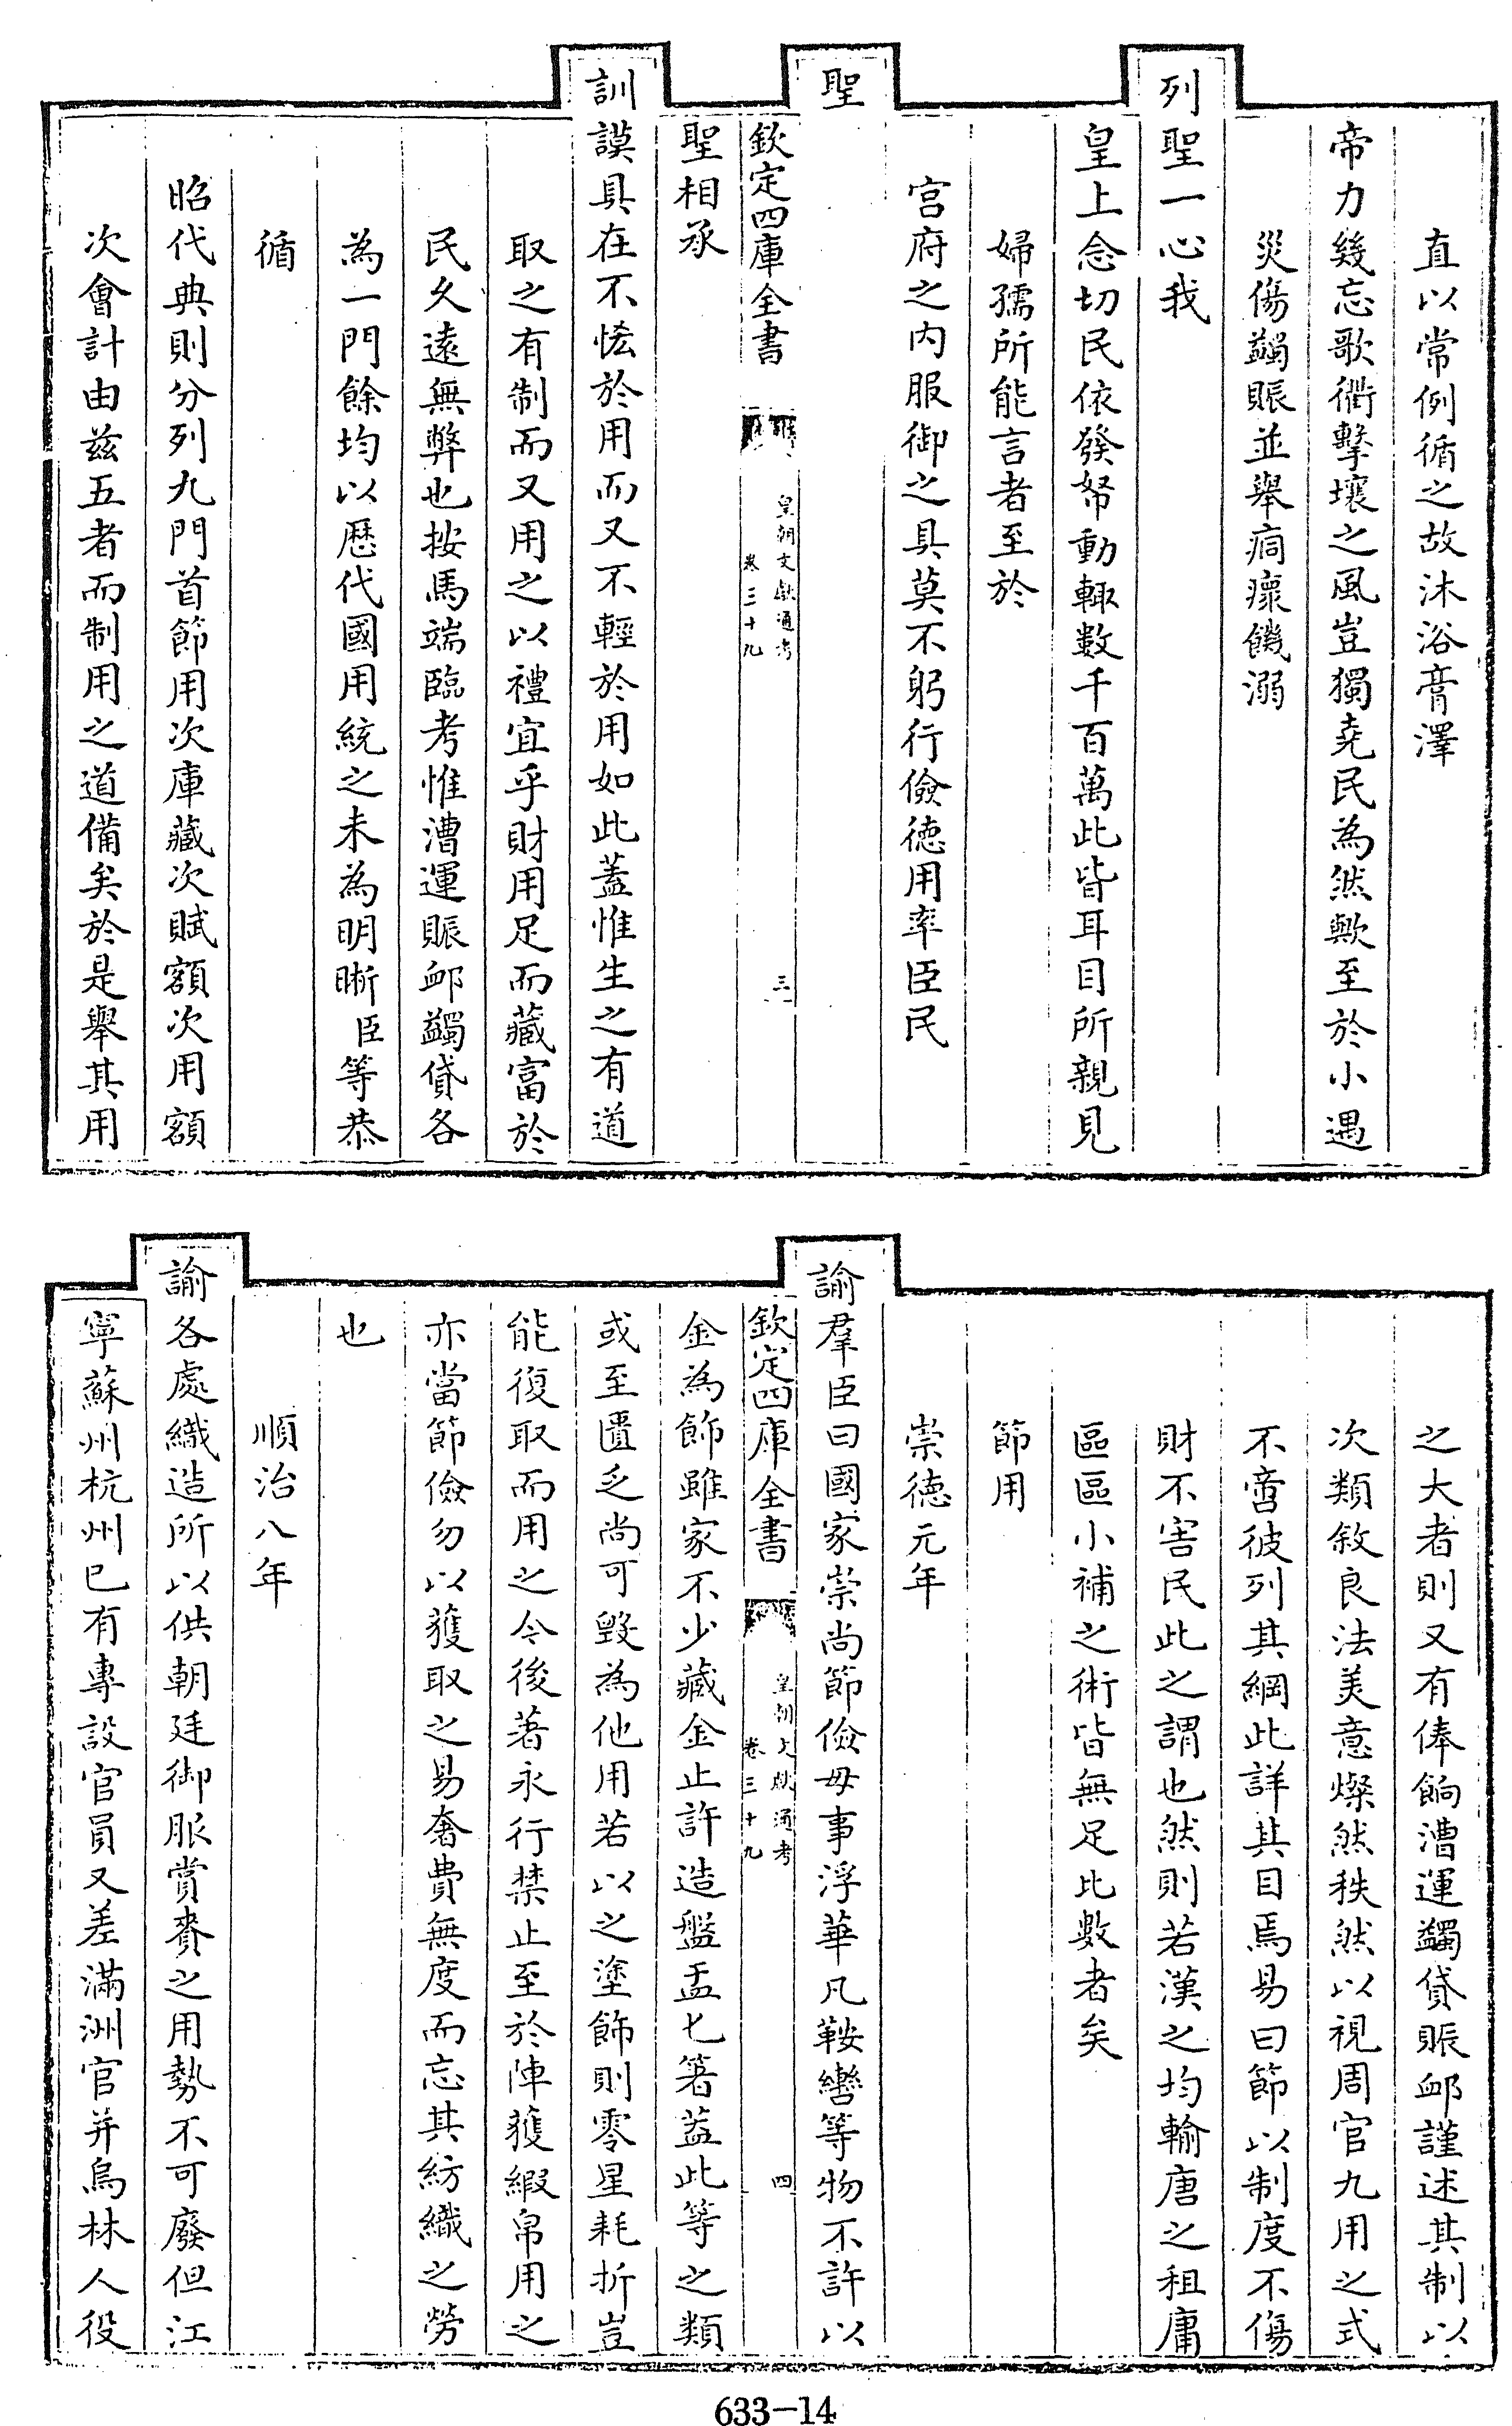 直以常例循之故沐浴膏澤
帝力幾忘歌衢擊壤之風豈獨堯民為然歟至於小遇
災傷蠲賑並舉痌瘝饑溺
列聖一心我
皇上念切民依發帑動輒數千百萬此皆耳目所親見
婦孺所能言者至於
宮府之內服御之具莫不躬行儉德用率臣民
聖
欽定四庫全書
皇朝文獻通考
卷三十九
三
聖相承
訓謨具在不恡於用而又不輕於用如此蓋惟生之有道
取之有制而又用之以禮宜乎財用足而藏富於
民久遠無弊也按馬端臨考惟漕運賑卹蠲貸各
為一門餘均以歷代國用統之未為明晰臣等恭
循
昭代典則分列九門首節用次庫藏次賦額次用額
次會計由茲五者而制用之道備矣於是舉其用
之大者則又有俸餉漕運蠲貸賑卹謹述其制以
次類敘良法美意燦然秩然以視周官九用之式
不啻彼列其綱此詳其目焉易曰節以制度不傷
財不害民此之謂也然則若漢之均輸唐之租庸
區區小補之術皆無足比數者矣
節用
崇德元年
諭羣臣曰國家崇尚節儉毋事浮華凡鞍轡等物不許以
欽定四庫全書
皇朝文獻通考
卷三十九
四
金為飾雖家不少藏金止許造盤盂匕箸蓋此等之類
或至匱乏尚可毀為他用若以之塗飾則零星耗折豈
能復取而用之今後著永行禁止至於陣獲緞帛用之
亦當節儉勿以獲取之易奢費無度而忘其紡織之勞
也
順治八年
諭各處織造所以供朝廷御服賞賚之用勢不可廢但江
寧蘇州杭州已有專設官員又差滿洲官并烏林人役
633-14